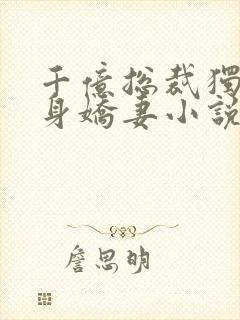 千億総裁獨
身嬌妻小說
詹思明